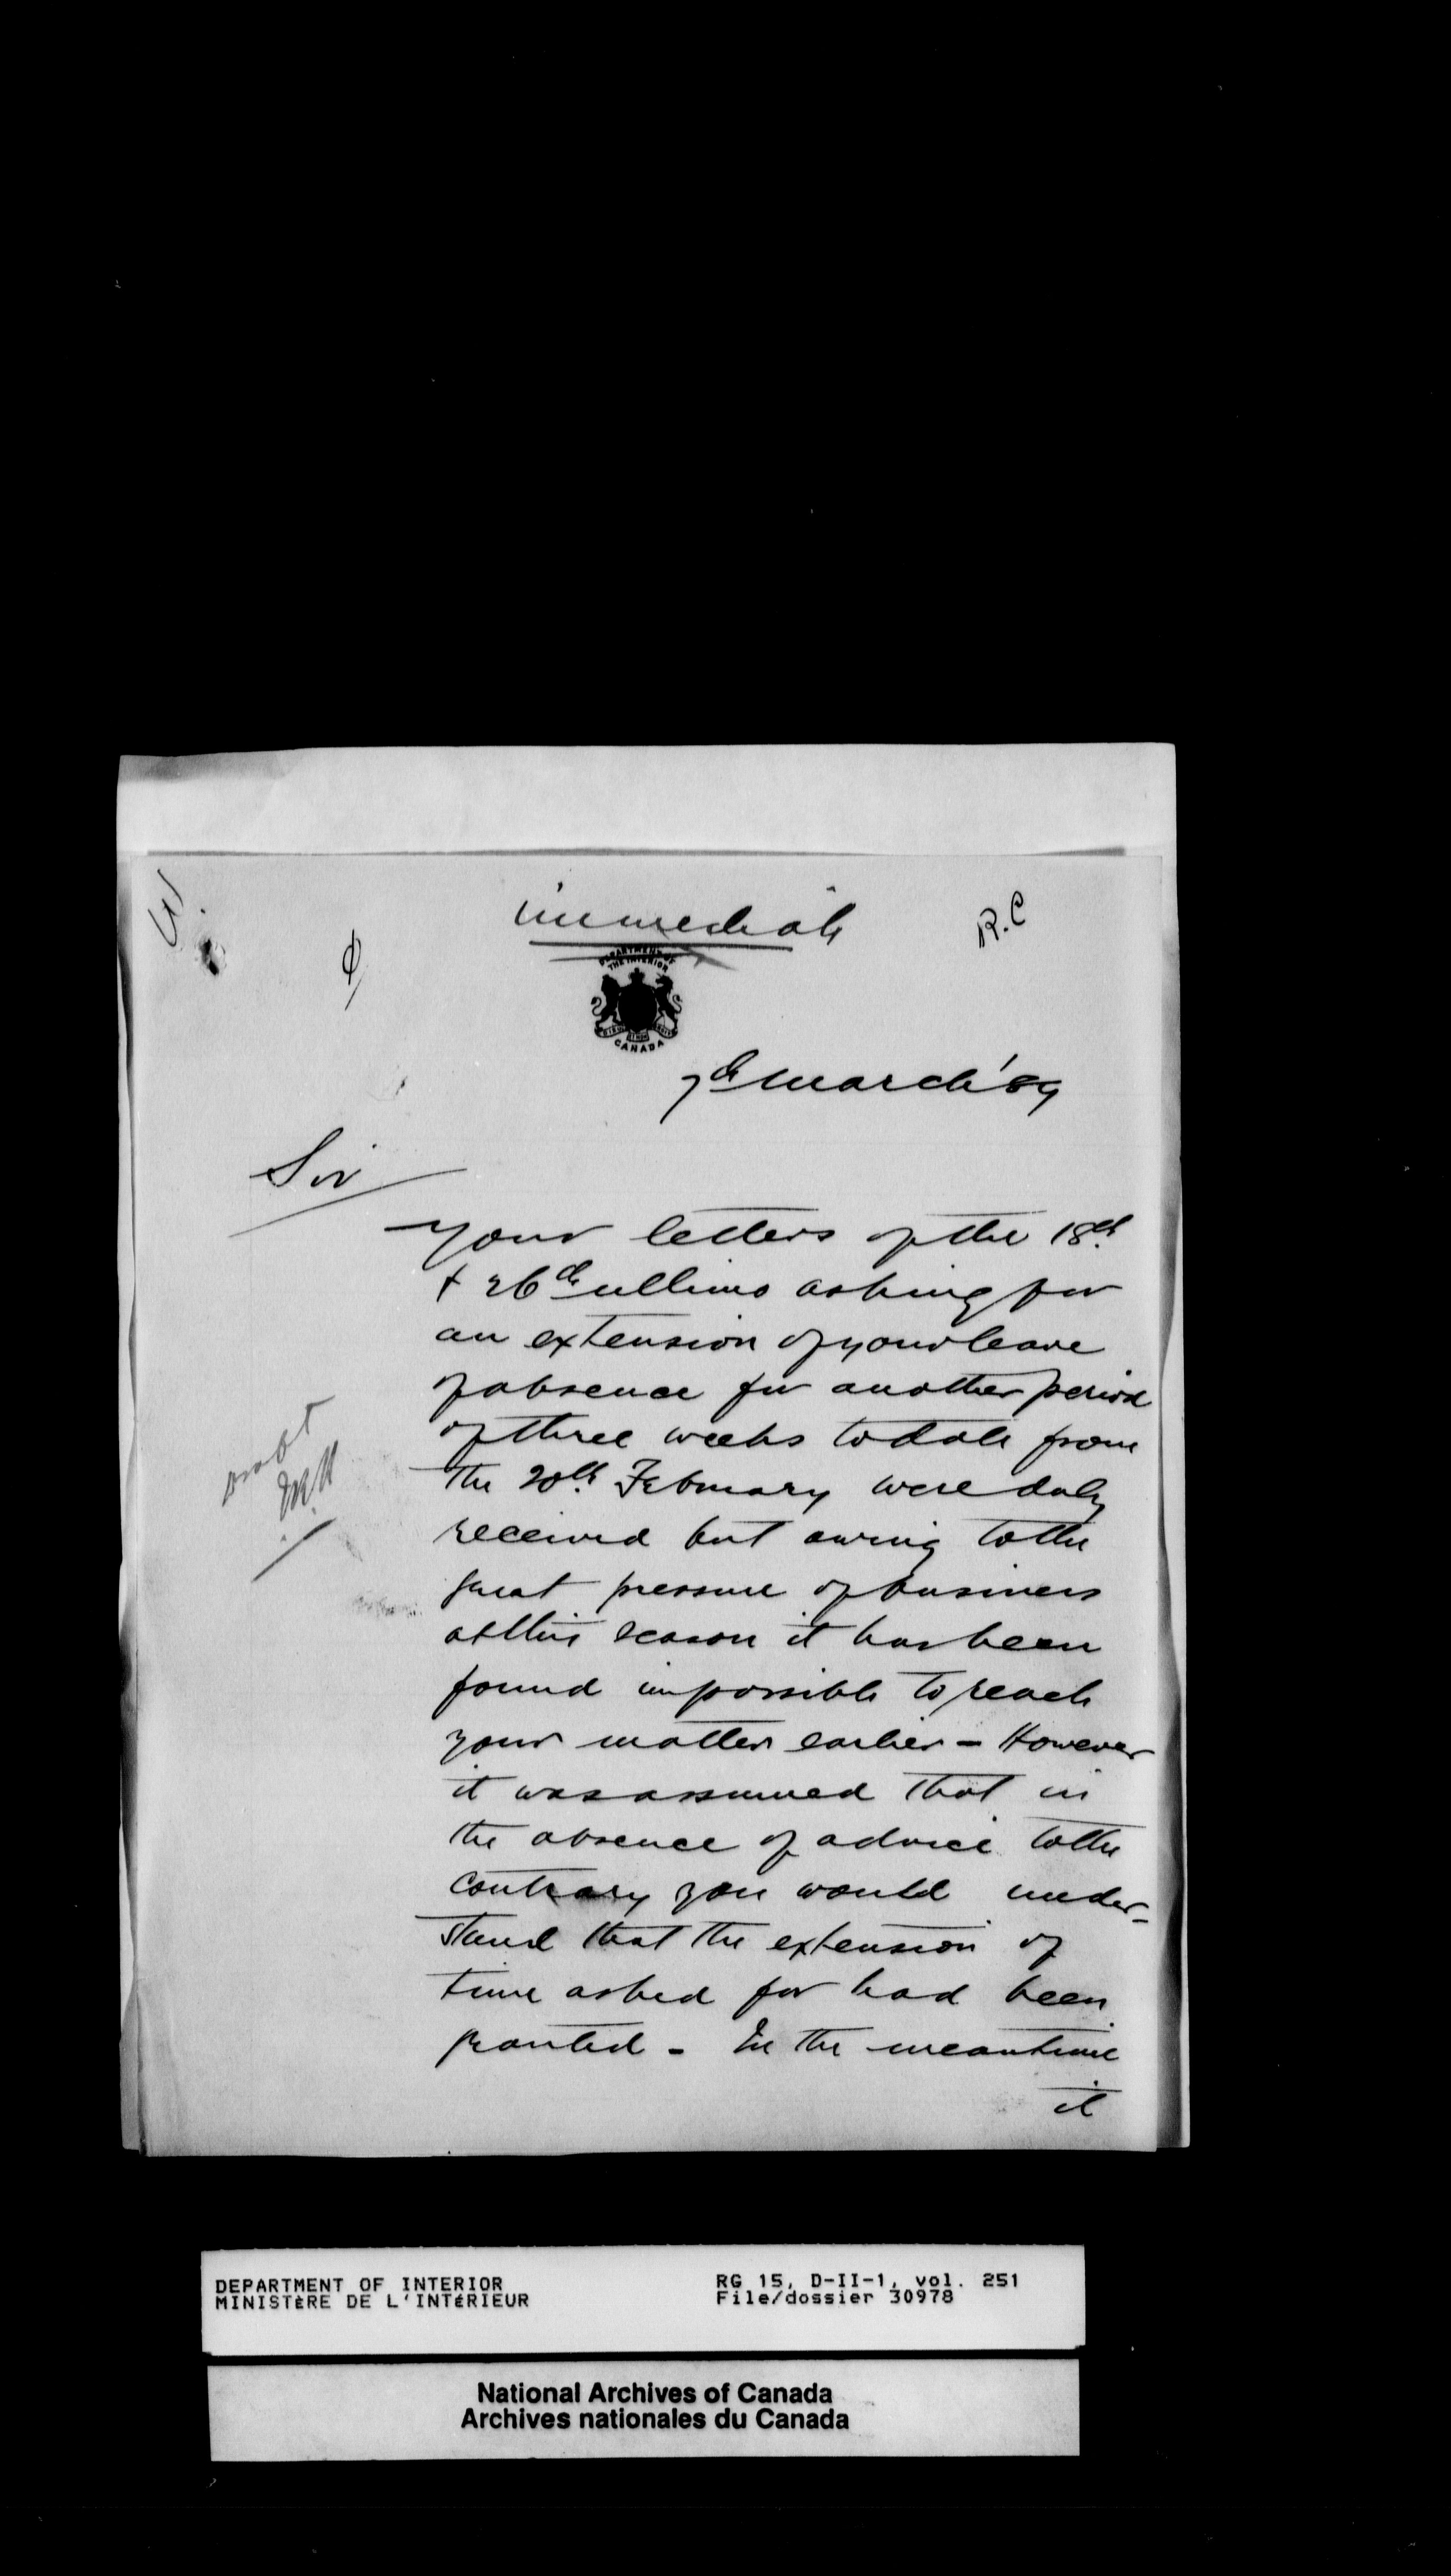 immediate
R.C
DEPARTMENT OF
THE INTERIOR
CANADA
7th March '89
Sir
Your letters of the 18th
& 26th ultimo asking for
an extension of your leave
of absence for another period
of three weeks to date from
the 20th February were duly
received but owing to the
great pressure of business
at this season it has been
found impossible to reach
your matter earlier - However
it was assumed that in
the absence of advice to the
contrary you would under-
stand that the extension of
time asked for had been
granted - In the meantime
it
DEPARTMENT OF INTERIOR
MINISTÈRE DE L'INTÉRIEUR
RG 15, D-II-1, vol. 251
File/dossier 30978
National Archives of Canada
Archives nationales du Canada